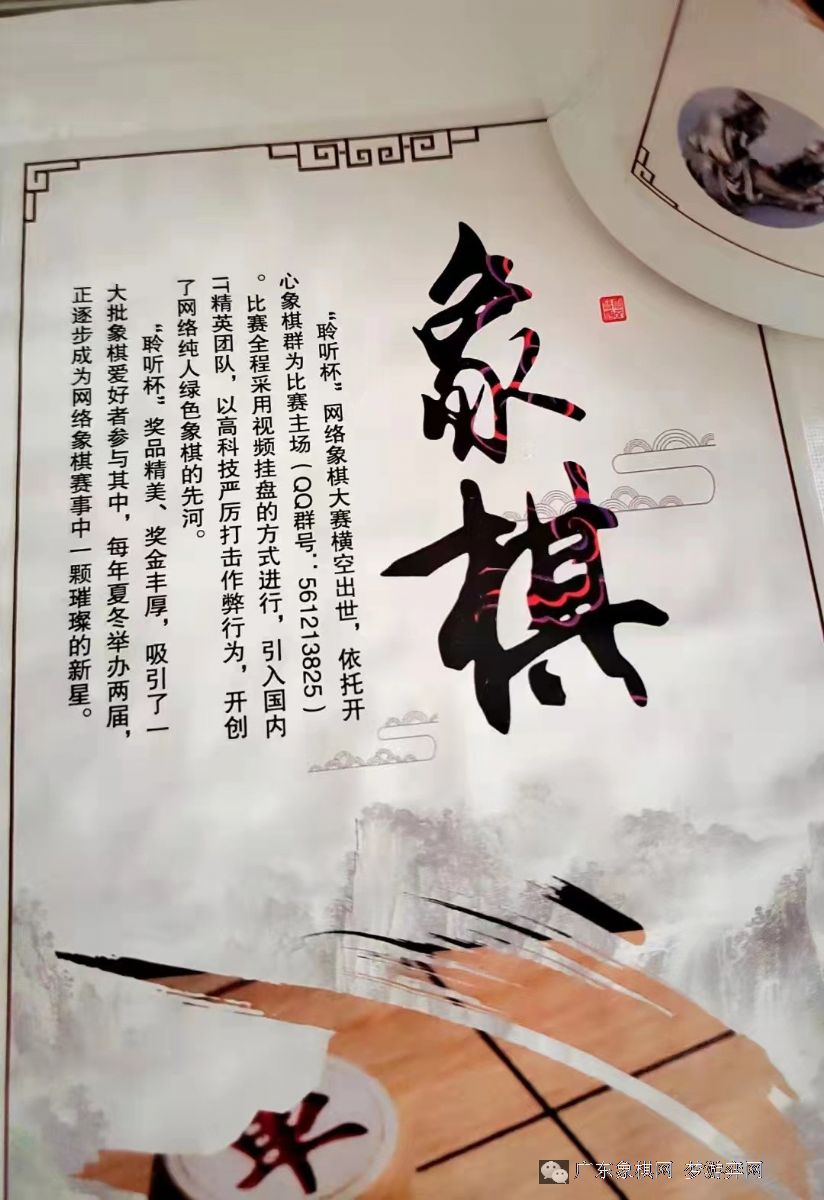 象棋
“聆听杯”网络象棋大赛横空出世，依托开
心象棋群为比赛主场（QQ群号：561213825）
。比赛全程采用视频挂盘的方式进行，引入国内
IT精英团队，以高科技严厉打击作弊行为，开创
了网络纯人绿色象棋的先河。
“聆听杯”奖品精美、奖金丰厚，吸引了一
大批象棋爱好者参与其中，每年夏冬举办两届，
正逐步成为网络象棋赛事中一颗璀璨的新星。
广东象棋网 梦游弈网